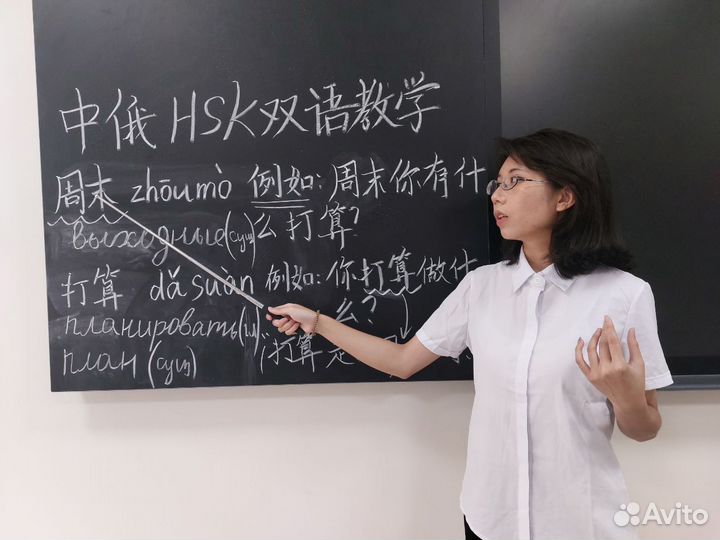 中俄HSK双语教学
周末 zhōumò 例如: 周末你有什
выходные(сущ) 么打算?
打算 dǎsuàn 例如: 你打算做什
планировать(гл) 么?
план (сущ) (打算是
Avito